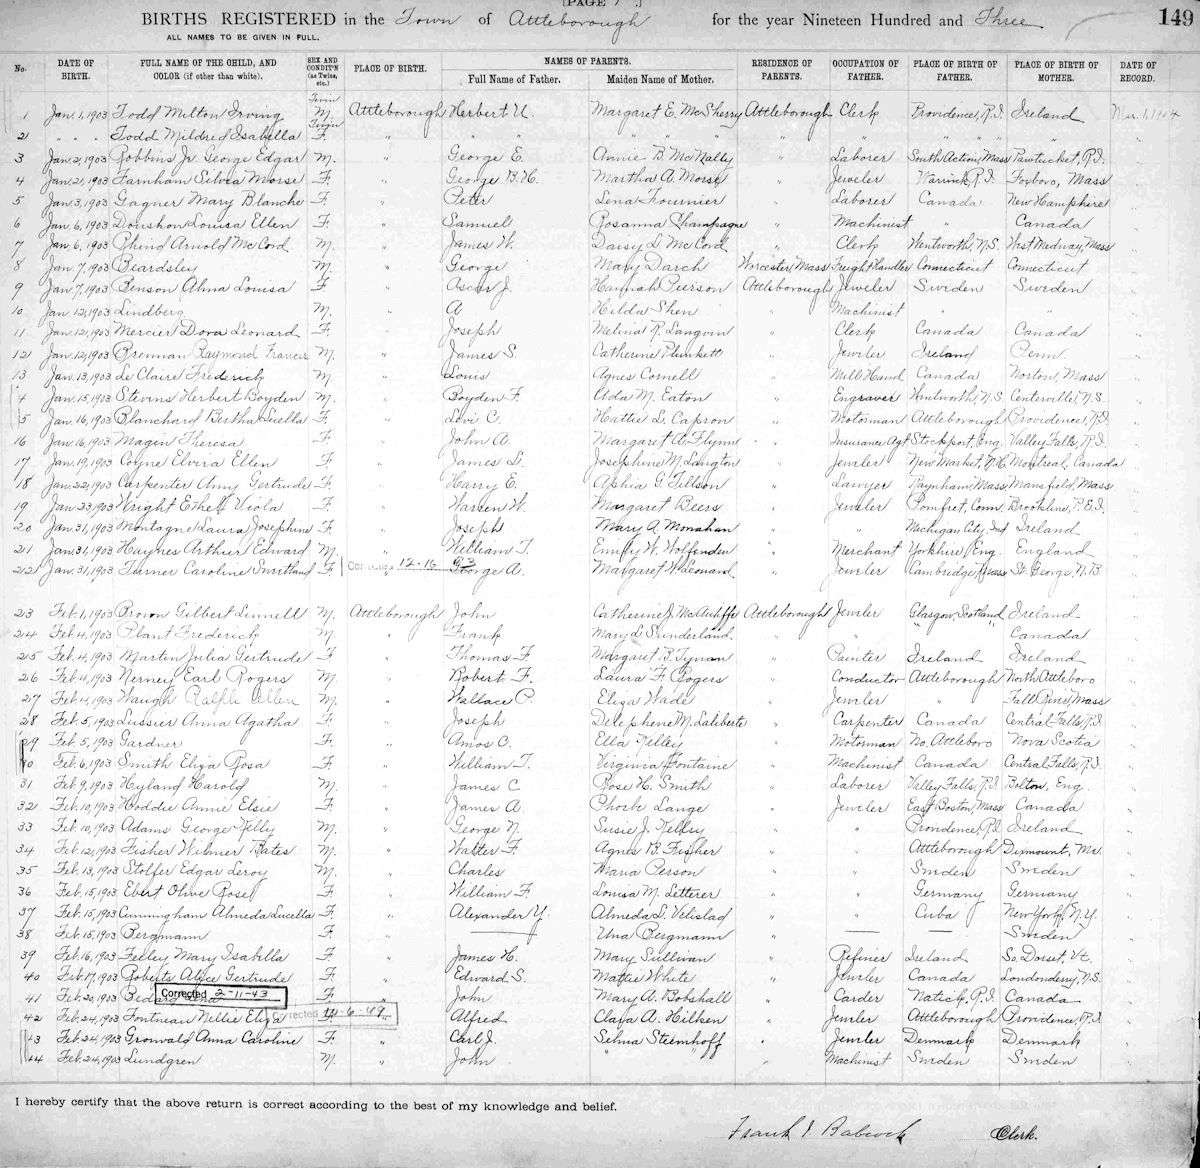 [PAGE 7 .]
BIRTHS REGISTERED in the Town of Attleborough for the year Nineteen Hundred and Three 149
ALL NAMES TO BE GIVEN IN FULL.
No. DATE OF BIRTH. FULL NAME OF THE CHILD, AND COLOR (if other than white). SEX AND CONDIT'N (as Twins, etc.) PLACE OF BIRTH. NAMES OF PARENTS. Full Name of Father. Maiden Name of Mother. RESIDENCE OF PARENTS. OCCUPATION OF FATHER. PLACE OF BIRTH OF FATHER. PLACE OF BIRTH OF MOTHER. DATE OF RECORD.
1 Jan. 1, 1903 Todd Milton Irving Twin M. Attleborough Herbert U. Margaret E. McSherry Attleborough Clerk Providence, R.I. Ireland Mar. 1, 1904
2 " " " Todd Mildred Isabella Twin F. " " " " " " " " " " "
3 Jan. 2, 1903 Robbins Jr. George Edgar M. " George E. Annie B. McNally " Laborer South Acton, Mass Pawtucket, R.I. "
4 Jan. 2, 1903 Farnham Silvia Morse F. " George B. H. Martha A. Morse " Jeweler Warwick, R.I. Foxboro, Mass "
5 Jan. 3, 1903 Gagner Mary Blanche F. " Peter Lena Fournier " Laborer Canada New Hampshire "
6 Jan. 6, 1903 Doushon Louisa Ellen F. " Samuel Rosanna Champagne " Machinist " Canada "
7 Jan. 6, 1903 Rhind Arnold McCord M. " James W. Daisy L. McCord " Clerk Wentworth, N.S. West Medway, Mass "
8 Jan. 7, 1903 Beardsley M. " George Mary Darch Worcester, Mass Freight Handler Connecticut Connecticut "
9 Jan. 7, 1903 Benson Alma Louisa F. " Oscar J. Hannah Pierson Attleborough Jeweler Sweden Sweden "
10 Jan. 12, 1903 Lindberg M. " A Hilda Shen " Machinist " " "
11 Jan. 12, 1903 Mercier Dora Leonard F. " Joseph Melina R. Langvin " Clerk Canada Canada "
12 Jan. 12, 1903 Brennan Raymond Francis M. " James S. Catherine Plunkett " Jeweler Ireland Penn. "
13 Jan. 13, 1903 Le Claire Frederick M. " Louis Agnes Cornell " Mill Hand Canada Norton, Mass "
14 Jan. 15, 1903 Stevens Herbert Boyden M. " Boyden F. Ada M. Eaton " Engraver Wentworth, N.S. Centerville, N.S. "
15 Jan. 16, 1903 Blanchard Bertha Luella F. " Levi C. Hattie L. Capron " Motorman Attleborough Providence, R.I. "
16 Jan. 16, 1903 Magin Theresa F. " John A. Margaret A. Flynn " Insurance Agt Stockport, Eng. Valley Falls, R.I. "
17 Jan. 19, 1903 Coyne Elvira Ellen F. " James L. Josephine M. Langton " Jeweler New Market, N.H. Montreal, Canada "
18 Jan. 22, 1903 Carpenter Amy Gertrude F. " Harry E. Aphia G. Tillson " Lawyer Raynham, Mass Mansfield, Mass "
19 Jan. 23, 1903 Wright Ethel Viola F. " Warren W. Margaret Beers " Jeweler Pomfret, Conn. Brookline, P.E.I. "
20 Jan. 31, 1903 Montagne Laura Josephine F. " Joseph Mary A. Monahan " " Michigan City, Ind Ireland "
21 Jan. 31, 1903 Haynes Arthur Edward M. " William T. Emily W. Wolfenden " Merchant Yorkshire, Eng. England "
22 Jan. 31, 1903 Turner Caroline Smetland F. Corrected 12-16 63 George A. Margaret W. Leonard " Jeweler Cambridge, Mass St. George, N.B. "
23 Feb. 1, 1903 Brown Gilbert Linnell M. Attleborough John Catherine J. McAuliffe Attleborough Jeweler Glasgow, Scotland Ireland "
24 Feb. 4, 1903 Plant Frederick M. " Frank Mary L. Sunderland " " " Canada "
25 Feb. 4, 1903 Martin Julia Gertrude F. " Thomas F. Margaret B. Tynan " Painter Ireland Ireland "
26 Feb. 4, 1903 Nerney Earl Rogers M. " Robert F. Laura F. Rogers " Conductor Attleborough North Attleboro "
27 Feb. 4, 1903 Waugh Ralph Allen M. " Wallace P. Eliza Wade " Jeweler " Fall River, Mass "
28 Feb. 5, 1903 Lussier Anna Agatha F. " Joseph Delephene M. Laliberte " Carpenter Canada Central Falls, R.I. "
29 Feb. 5, 1903 Gardner F. " Amos C. Ella Kelley " Motorman No. Attleboro Nova Scotia "
30 Feb. 6, 1903 Smith Eliza Rosa F. " William T. Virginia Fontaine " Machinist Canada Central Falls, R.I. "
31 Feb. 9, 1903 Hyland Harold M. " James C Rose H. Smith " Laborer Valley Falls, R.I. Bolton, Eng. "
32 Feb. 10, 1903 Hoddie Annie Elsie F. " James A. Phoeb Lange " Jeweler East Boston, Mass Canada "
33 Feb. 10, 1903 Adams George Kelly M. " George N. Susie J. Kelley " " Providence, R.I. Ireland "
34 Feb. 12, 1903 Fisher Wilmer Bates M. " Walter F. Agnes B. Fisher " " Attleborough Dixmount, Me. "
35 Feb. 13, 1903 Stolfer Edgar Leroy M. " Charles Maria Person " " Sweden Sweden "
36 Feb. 15, 1903 Ebert Olive Rose F. " William F. Louisa M. Letterer " " Germany Germany "
37 Feb. 15, 1903 Cunningham Almeda Lucella F. " Alexander Y. Almeda L. Velislad " " Cuba New York, N.Y. "
38 Feb. 15, 1903 Bergmann F. " — Una Bergmann " — — Sweden "
39 Feb. 16, 1903 Felley Mary Isabella F. " James H. Mary Sullivan " Refiner Ireland So. Dorset, Vt. "
40 Feb. 17, 1903 Roberts Alice Gertrude F. " Edward S. Mattie White " Jeweler Canada Londonderry, N.S. "
41 Feb. 20, 1903 Bedard Lena F. " John Mary A. Bobshall " Carder Natick, R.I. Canada "
Corrected 2-11-43
42 Feb. 24, 1903 Fontneau Nellie Eliza F. " Alfred Clara A. Hilken " Jeweler Attleborough Providence, R.I. "
Corrected 11-6-49
43 Feb. 24, 1903 Gronvald Anna Caroline F. " Carl J. Selma Stemhoff " Jeweler Denmark Denmark "
44 Feb. 24, 1903 Lundgren M. " John " " Machinist Sweden Sweden "
I hereby certify that the above return is correct according to the best of my knowledge and belief.
Frank I. Babcock Clerk.